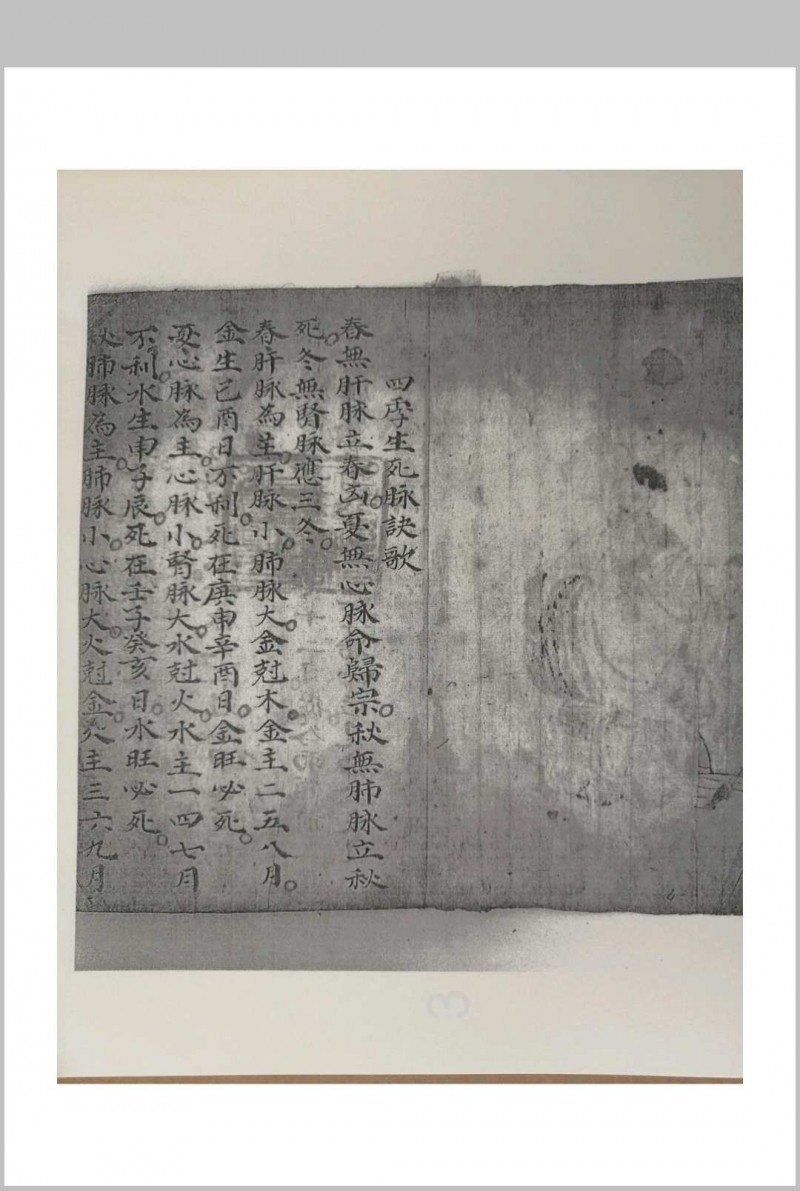 四季生死脉訣歌
春無肝脉立春凶。夏無心脉命歸宗。秋無肺脉立秋
死。冬無腎脉應三冬。
春肝脉為主肝脉小。肺脉大。金尅木。金主二五八月。
金生己酉日不利。死在庚申辛酉日。金旺必死。
夏心脉為主。心脉小。腎脉大。水尅火。水主一四七月
不利。水生申子辰。死在壬子癸亥日。水旺必死。
秋肺脉為主。肺脉小。心脉大。火尅金。火主三六九月